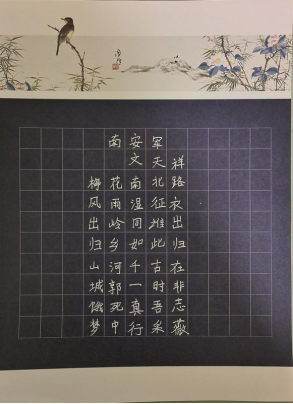 南安军
文天祥
梅花南北路
风雨湿征衣
出岭同谁出
归乡如此归
山河千古在
城郭一时非
饿死真吾志
梦中行采薇